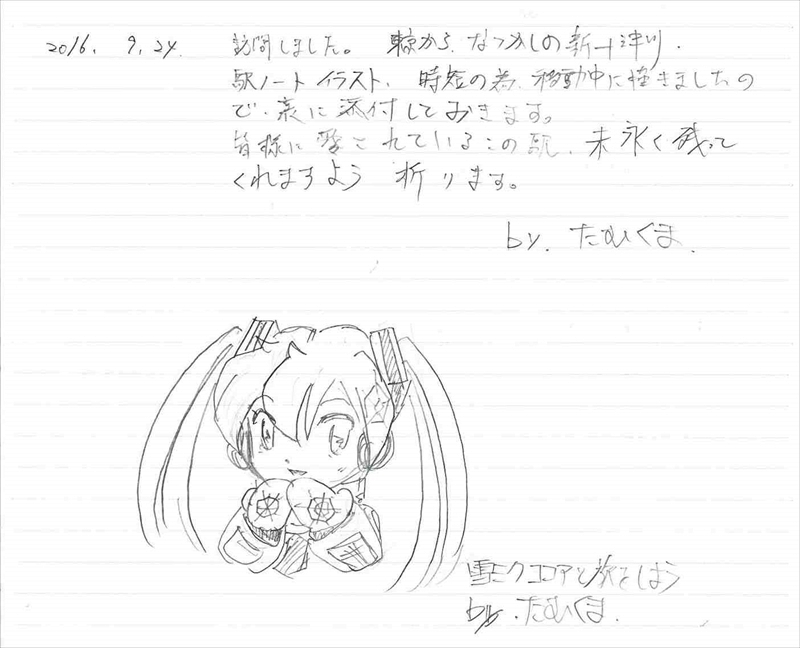 2016. 9.24. 訪問しました。 東京から、なつかしの新十津川.
駅ノート イラスト、 時短の為、移動中に描きましたの
で、裏に添付しておきます。
皆様に愛されているこの駅、末永く残って
くれますよう 祈ります。
by. たぬくま.
雪ミク ココアと旅をしよう
by. たぬくま.